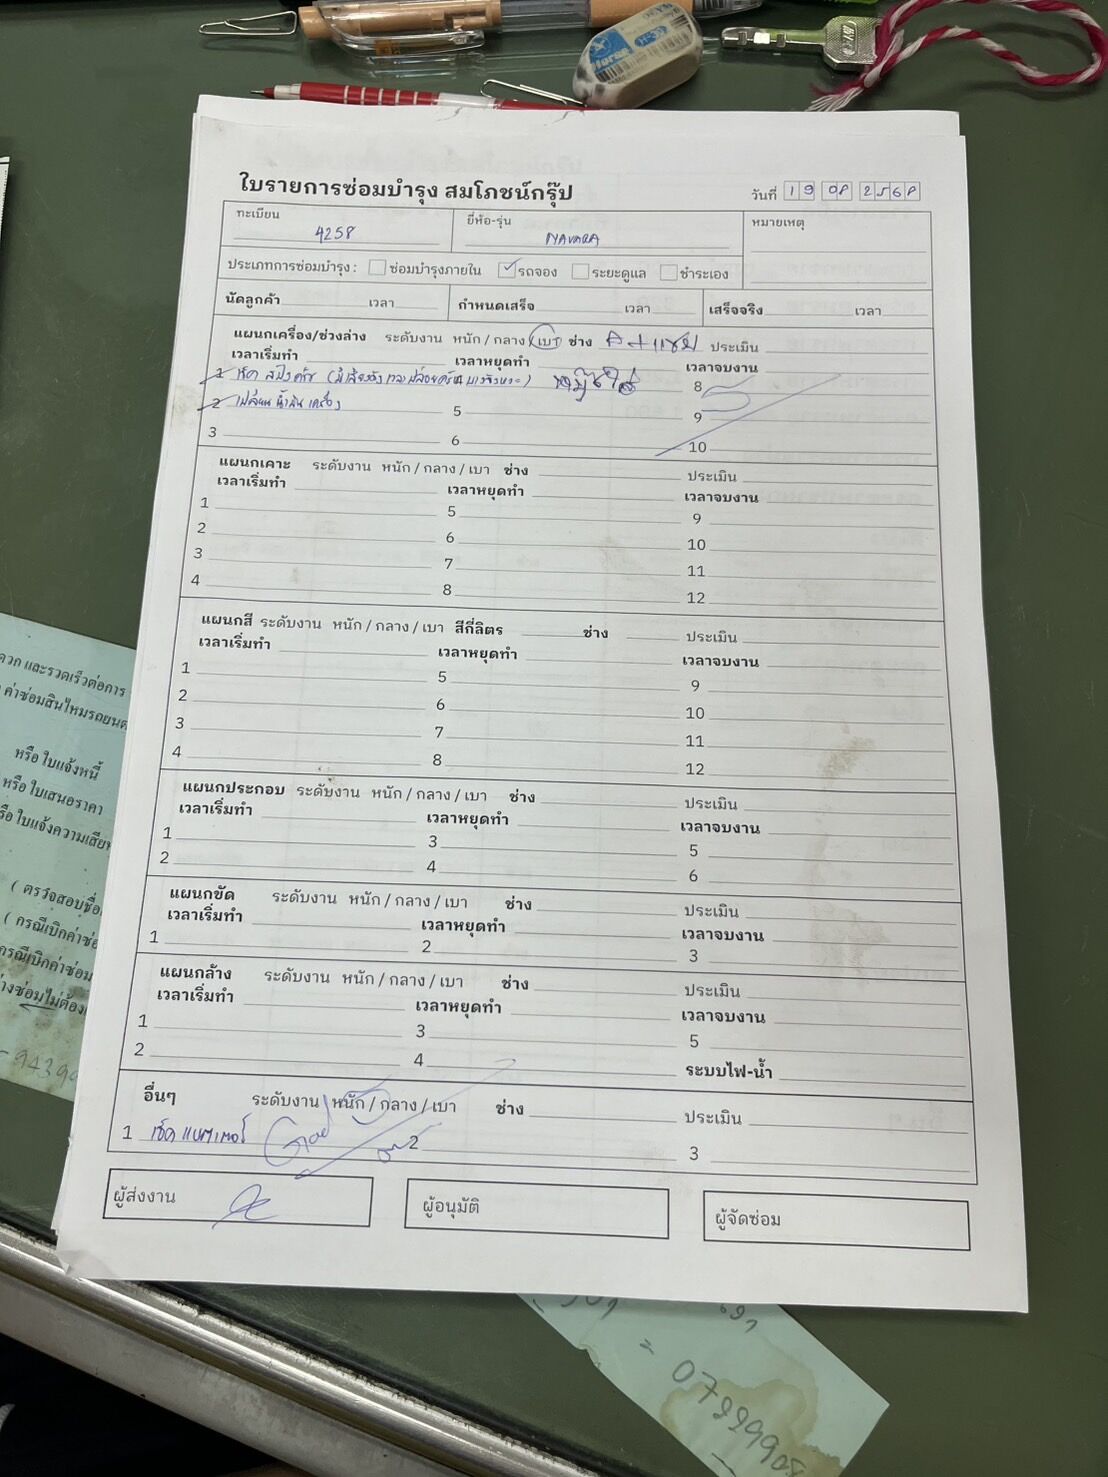 ใบรายการซ่อมบำรุง สมโภชน์กรุ๊ป
วันที่ 19 08 2568
ทะเบียน 4258 ยี่ห้อ-รุ่น NAVARA หมายเหตุ
ประเภทการซ่อมบำรุง : ซ่อมบำรุงภายใน รถจอง ระยะดูแล ชำระเอง
นัดลูกค้า เวลา กำหนดเสร็จ เวลา เสร็จจริง เวลา
แผนกเครื่อง/ช่วงล่าง ระดับงาน หนัก / กลาง / เบา ช่าง ประเมิน
เวลาเริ่มทำ เวลาหยุดทำ เวลาจบงาน
1 เช็ค 8
2 เปลี่ยนน้ำมันเครื่อง 5 9
3 6 10
แผนกเคาะ ระดับงาน หนัก / กลาง / เบา ช่าง ประเมิน
เวลาเริ่มทำ เวลาหยุดทำ เวลาจบงาน
1 5 9
2 6 10
3 7 11
4 8 12
แผนกสี ระดับงาน หนัก / กลาง / เบา สีกี่ลิตร ช่าง ประเมิน
เวลาเริ่มทำ เวลาหยุดทำ เวลาจบงาน
1 5 9
2 6 10
3 7 11
4 8 12
แผนกประกอบ ระดับงาน หนัก / กลาง / เบา ช่าง ประเมิน
เวลาเริ่มทำ เวลาหยุดทำ เวลาจบงาน
1 3 5
2 4 6
แผนกขัด ระดับงาน หนัก / กลาง / เบา ช่าง ประเมิน
เวลาเริ่มทำ เวลาหยุดทำ เวลาจบงาน
1 2 3
แผนกล้าง ระดับงาน หนัก / กลาง / เบา ช่าง ประเมิน
เวลาเริ่มทำ เวลาหยุดทำ เวลาจบงาน
1 3 5
2 4 ระบบไฟ-น้ำ
อื่นๆ ระดับงาน หนัก / กลาง / เบา ช่าง ประเมิน
1 เช็คแบตเตอรี่ 2 3
ผู้ส่งงาน ผู้อนุมัติ ผู้จัดซ่อม
และรวดเร็วต่อการ
ค่าซ่อมสินไหมรถยนต์
หรือ ใบแจ้งหนี้
หรือ ใบเสนอราคา
ใบแจ้งความเสีย
( ตรวจสอบชื่อ
( กรณีเบิกค่าซ่อม
กรณีเบิกค่าซ่อม
ซ่อมไม่ต้อง